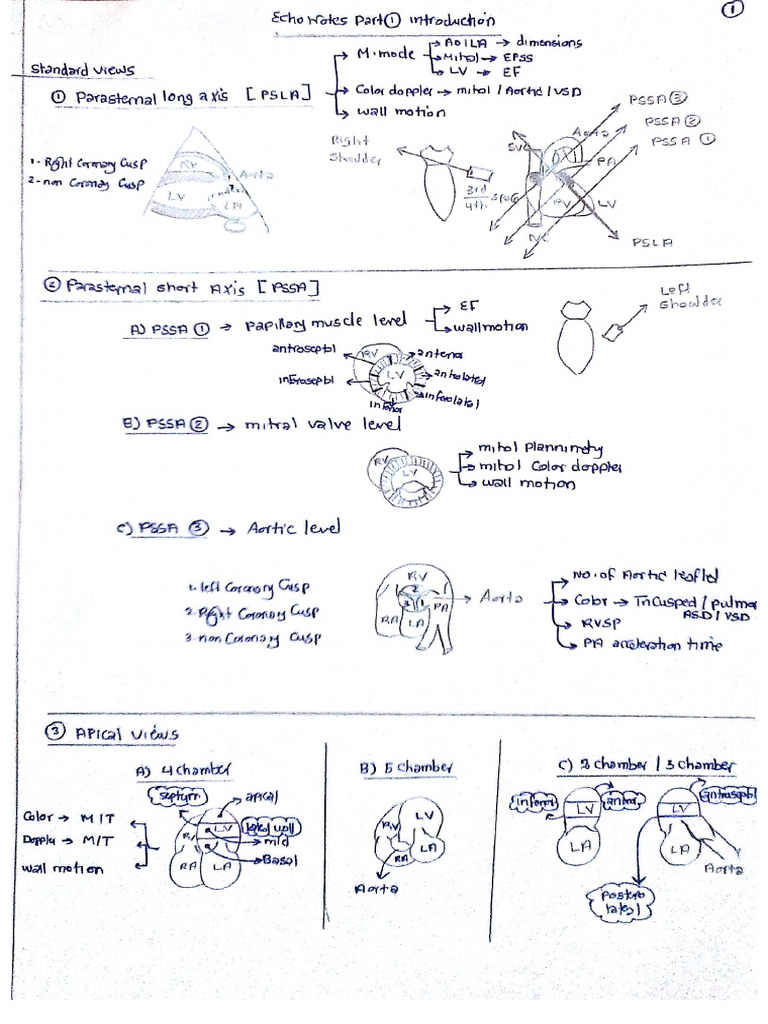 1
Echo Notes Part ① introduction
Standard views
① Parasternal long axis [PSLA]
M.mode
Ao/LA → dimensions
Mitral → EPSS
LV → EF
Color doppler → mitral / Aortic / VSD
wall motion
1- Right Coronary Cusp
2- non Coronary Cusp
RV
LV
Aorta
LA
Right
Shoulder
3rd
4th
space
SVC
IVC
Aorta
PA
RV
LV
PSSA ③
PSSA ②
PSSA ①
PSLA
② Parasternal short Axis [PSSA]
A) PSSA ① → Papillary muscle level
EF
wallmotion
Left
Shoulder
RV
LV
anterior
B) PSSA ② → mitral valve level
RV
LV
mitral Color doppler
wall motion
C) PSSA ③ → Aortic level
1. left Coronary Cusp
2. Right Coronary Cusp
3. non Coronary Cusp
RV
2
3 1
PA
RA
LA
→ Aorta
Color → Tricusped / pulmon
ASD / VSD
RVSP
③ Apical views
A) 4 chamber
septum
apical
Color → M/T
lateral wall
mid
Basal
wall motion
RV
LV
RA
LA
B) 5 chamber
RV
LV
RA
LA
Aorta
C) 2 chamber / 3 chamber
LV
LA
LV
LA
Aorta